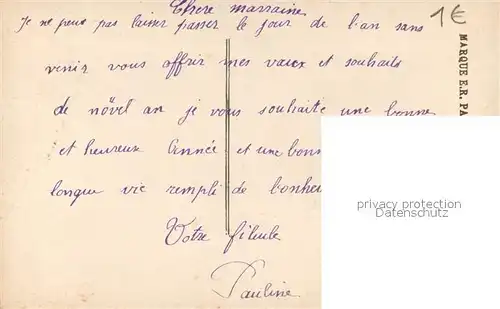 Chere marraine
Je ne peux pas laisser passer le jour de l'an sans
venir vous offrir mes vœux et souhaits
de növel an je vous souhaite une bonne
et heureux Année et une bonn
longue vie rempli de bonheu
Votre fileule
Pauline
1€
MARQUE E.R. PA
privacy protection
Datenschutz